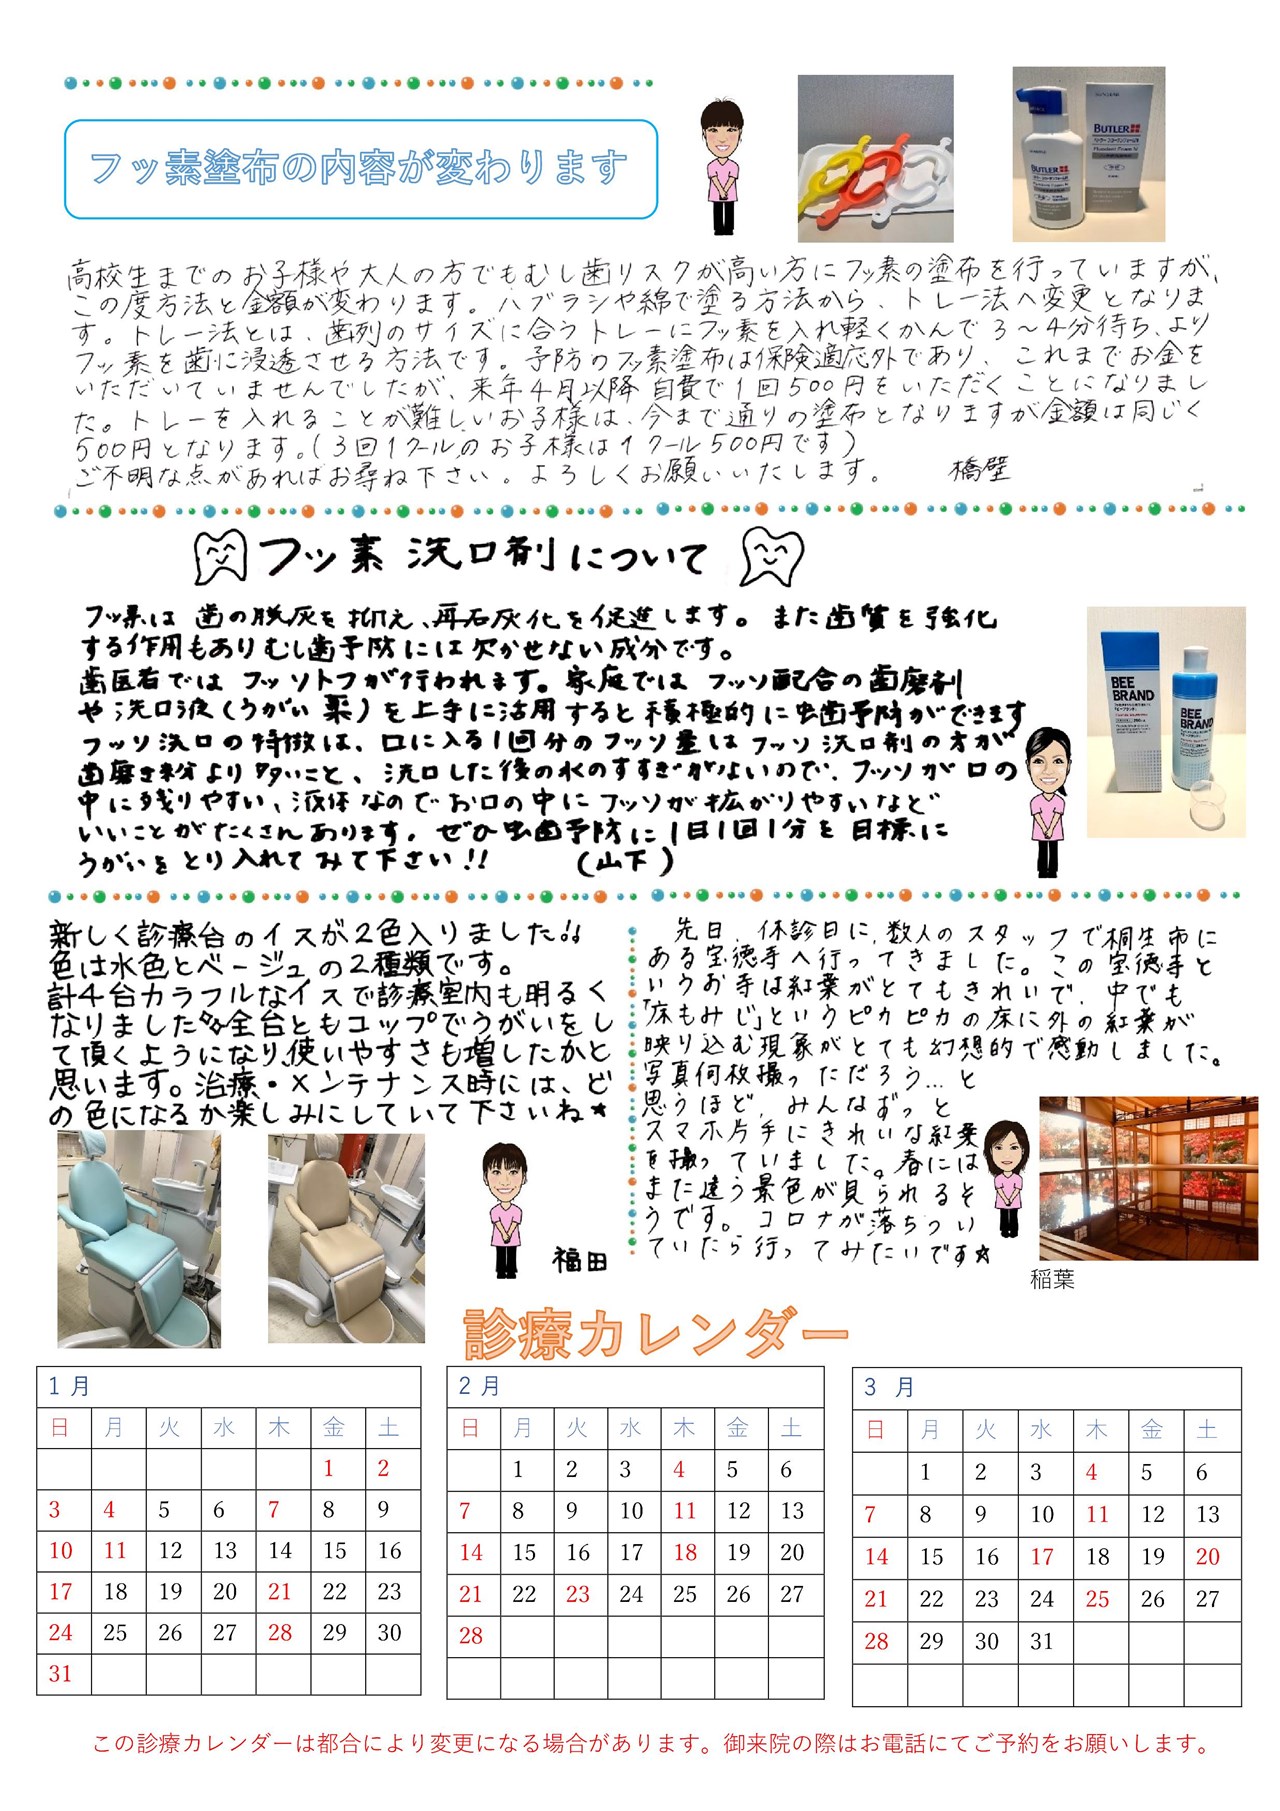 フッ素塗布の内容が変わります
BUTLER
BUTLER
高校生までのお子様や大人の方でもむし歯リスクが高い方にフッ素の塗布を行っていますが、
この度方法と金額が変わります。ハブラシや綿で塗る方法から、トレー法へ変更となりま
す。トレー法とは、歯列のサイズに合うトレーにフッ素を入れ軽くかんで3～4分待ち、より
フッ素を歯に浸透させる方法です。予防のフッ素塗布は保険適応外であり、これまでお金を
いただいていませんでしたが、来年4月以降自費で1回500円をいただくことになりまし
た。トレーを入れることが難しいお子様は、今まで通りの塗布となりますが金額は同じく
500円となります。(3回1クールのお子様は1クール500円です)
ご不明な点があればお尋ね下さい。よろしくお願いいたします。 橋壁
フッ素洗口剤について
フッ素は歯の脱灰を抑え、再石灰化を促進します。また歯質を強化
する作用もありむし歯予防には欠かせない成分です。
歯医者ではフッソトフが行われます。家庭ではフッソ配合の歯磨剤
や洗口液(うがい薬)を上手に活用すると積極的に虫歯予防ができます
フッソ洗口の特徴は、口に入る1回分のフッソ量はフッソ洗口剤の方が
歯磨き粉より多いこと、洗口した後の水のすすぎがないので、フッソが口の
中に残りやすい、液体なのでお口の中にフッソが拡がりやすいなど
いいことがたくさんあります。ぜひ虫歯予防に1日1回1分を目標に
うがいをとり入れてみて下さい!! (山下)
BEE
BRAND
BEE
BRAND
新しく診療台のイスが2色入りました!!
色は水色とベージュの2種類です。
計4台カラフルなイスで診療室内も明るく
なりました 全台ともコップでうがいをし
て頂くようになり、使いやすさも増したかと
思います。治療・メンテナンス時には、ど
の色になるか楽しみにしていて下さいね★
福田
先日、休診日に、数人のスタッフで桐生市に
ある宝徳寺へ行ってきました。この宝徳寺と
いうお寺は紅葉がとてもきれいで、中でも
「床もみじ」というピカピカの床に外の紅葉が
映り込む現象がとても幻想的で感動しました。
写真何枚撮っただろう…と
思うほど、みんなずっと
スマホ片手にきれいな紅葉
を撮っていました。春には
また違う景色が見られるそ
うです。コロナが落ちつい
ていたら行ってみたいです☆
稲葉
診療カレンダー
1 月
日 月 火 水 木 金 土
1 2
3 4 5 6 7 8 9
10 11 12 13 14 15 16
17 18 19 20 21 22 23
24 25 26 27 28 29 30
31
2 月
日 月 火 水 木 金 土
1 2 3 4 5 6
7 8 9 10 11 12 13
14 15 16 17 18 19 20
21 22 23 24 25 26 27
28
3 月
日 月 火 水 木 金 土
1 2 3 4 5 6
7 8 9 10 11 12 13
14 15 16 17 18 19 20
21 22 23 24 25 26 27
28 29 30 31
この診療カレンダーは都合により変更になる場合があります。御来院の際はお電話にてご予約をお願いします。